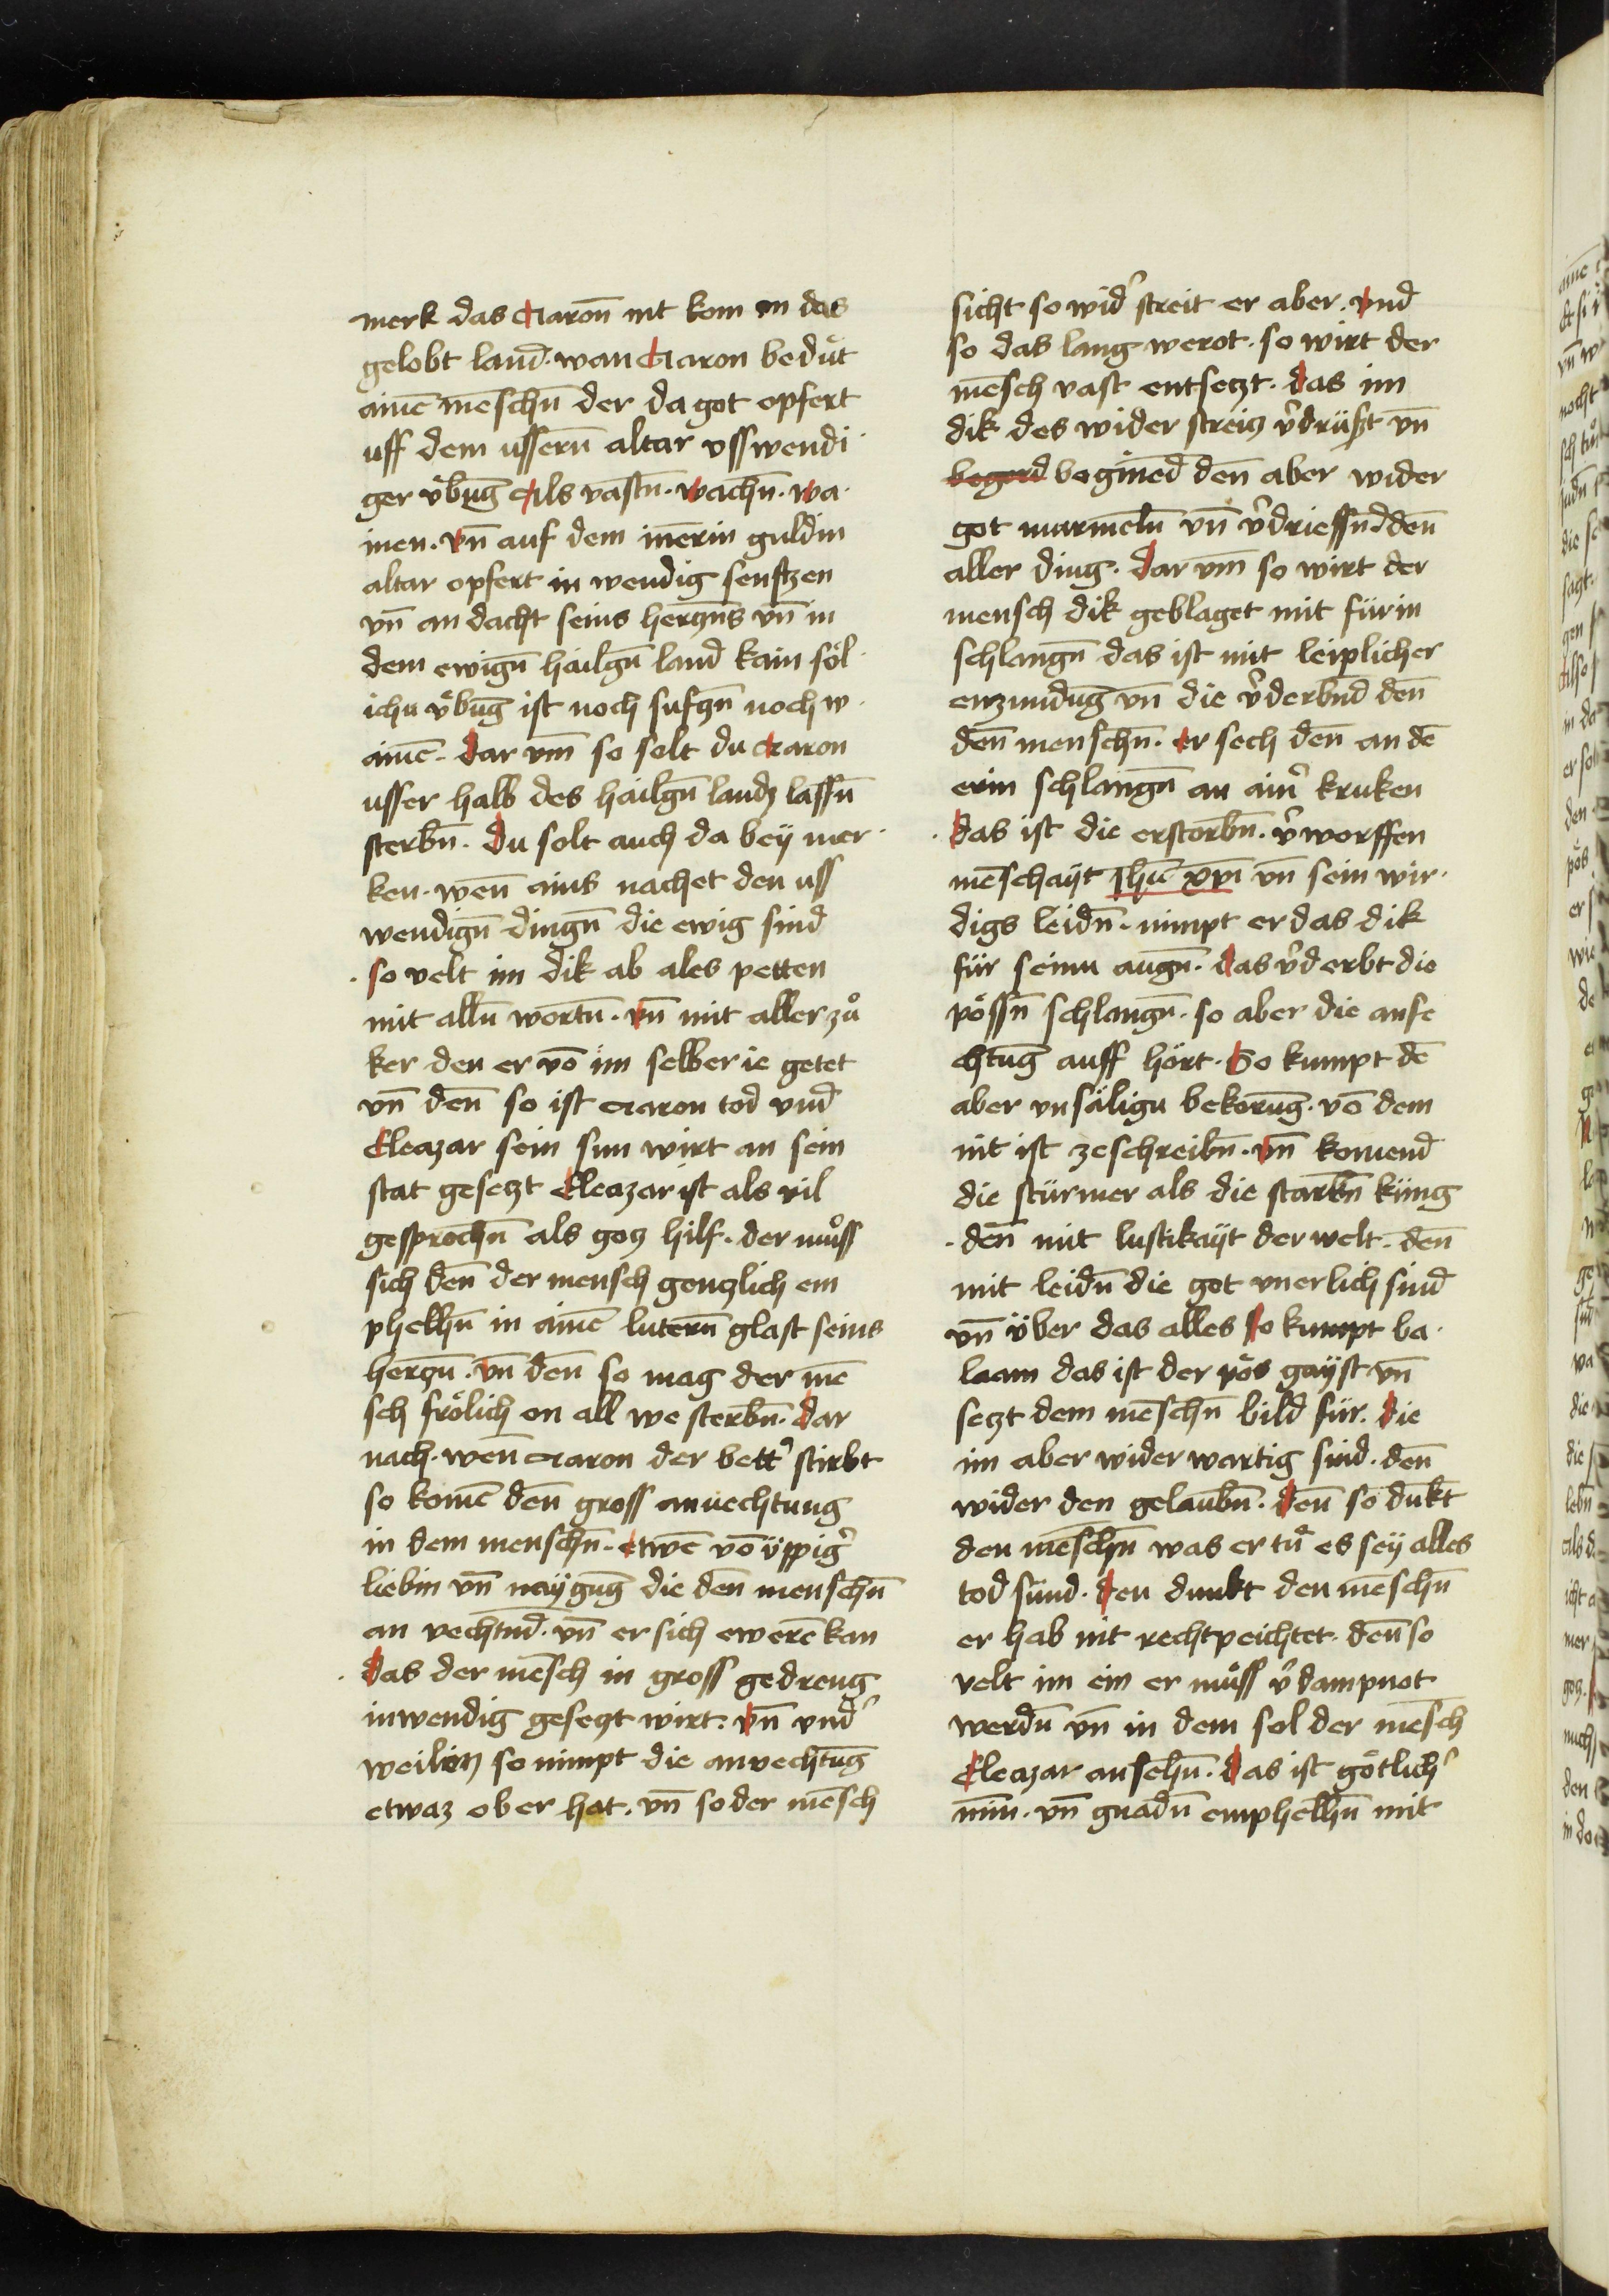 merk das Aaron̄ nit kom in das
gelobt land̄. wan Aaron bedüt
aime mēschn̄ der da got opfert
uff dem ussern̄ altar vsswendi·
ger v̈bun̄g Als vastn̄. wachn̄. wa·
inen. vn̄ auf dem inērin guldin
altar opfert in wendig senftzen
vn̄ an dacht seins hertzn̄s vn̄ in
dem ewign̄ hailgn̄ land̄ kain söl·
ichu v̈bun̄g ist noch sufczn̄ noch w·
ainē. Dar vm̄ so solt du Aaron
usser halb des hailgn̄ landz lassn̄
sterbn̄. Du solt auch da beÿ mer·
ken. wen̄ ains nachet den uss
wendign̄ dingn̄ die ewig sind̄
. so velt im dik ab ales petten
mit alln̄ wortn̄. vn̄ mit aller zuͦ
ker den er vō im selber ie getet
vn̄ den̄ so ist Aaron tod vnd̄
Eleazar sein sun wirt an sein
stat gesetzt Eleazar ist als vil
gesprochn̄ als gotz hilf. der muͦss
sich den̄ der mensch gentzlich em
phelhn̄ in aimē lutern̄ glast seins
hertzn̄. vn̄ den̄ so mag der mē
sch frölich on all we sterbn̄. Dar
nach. wen̄ Aaron der bett' stirbt
so komē den̄ gross anuechtung
in dem menschn̄. etwē vō üppig'
liebin vn̄ naÿgun̄g die den̄ menschn̄
an vechtnd̄. vn̄ er sich ewerē kan
. Das der mēsch in gross gedreng
inwendig gesetzt wirt. vn̄ vnd'
weilen so nimpt die anvechtun̄g
etwaz ober hat. vn̄ so der mēsch
sicht so wid' streit er aber. vnd
so das lang werot. so wirt der
mēsch vast entsetzt. das im
dik des wider streitz v'drüszt vn̄
begerd begined̄ den̄ aber wider
got marmeln̄ vn̄ v'driessnd̄ den̄
aller ding. Dar vm̄ so wirt der
mensch dik geblaget mit fürin
schlangn̄ das ist mit leiplicher
enzundun̄g vn̄ die v'derbnd̄ den̄
den̄ menschn̄. er sech den̄ an dē
erin schlangn̄ an ain' kruken
. Das ist die erstorbn̄. v'worffen
mēschaÿt Jhū xp̄i vn̄ sein wir·
digs leidn̄. nimpt er das dik
für seinu augn̄. das v'derbt die
pössn̄ schlangn̄. so aber die anfe
chtun̄g auff hört. So kumpt dē
aber vnsäligu bekorun̄g. vō dem
nit ist ze schreibn̄. vn̄ komend̄
die stürmer als die starkn̄ küng
. den̄ mit lustikaÿt der welt. den̄
mit leidn̄ die got vnerlich sind̄
vn̄ über das alles so kumpt ba·
laam das ist der pös gaÿst vn̄
setzt dem mēschn̄ bild̄ für. die
im aber wider wertig sind. den̄
wider den gelaubn̄. den̄ so dukt̄
den mēschn̄ was er tuͦ es seÿ alles
tod sünd. den dunkt den mēschn̄
er hab nit recht peichtet. den̄ so
velt im ein er muͦss v'dampnot
werdn̄ vn̄ in dem sol der mēsch
Eleazar ansehn̄. das ist götlich'
min̄. vn̄ gnadn̄ emphelhn̄ mit